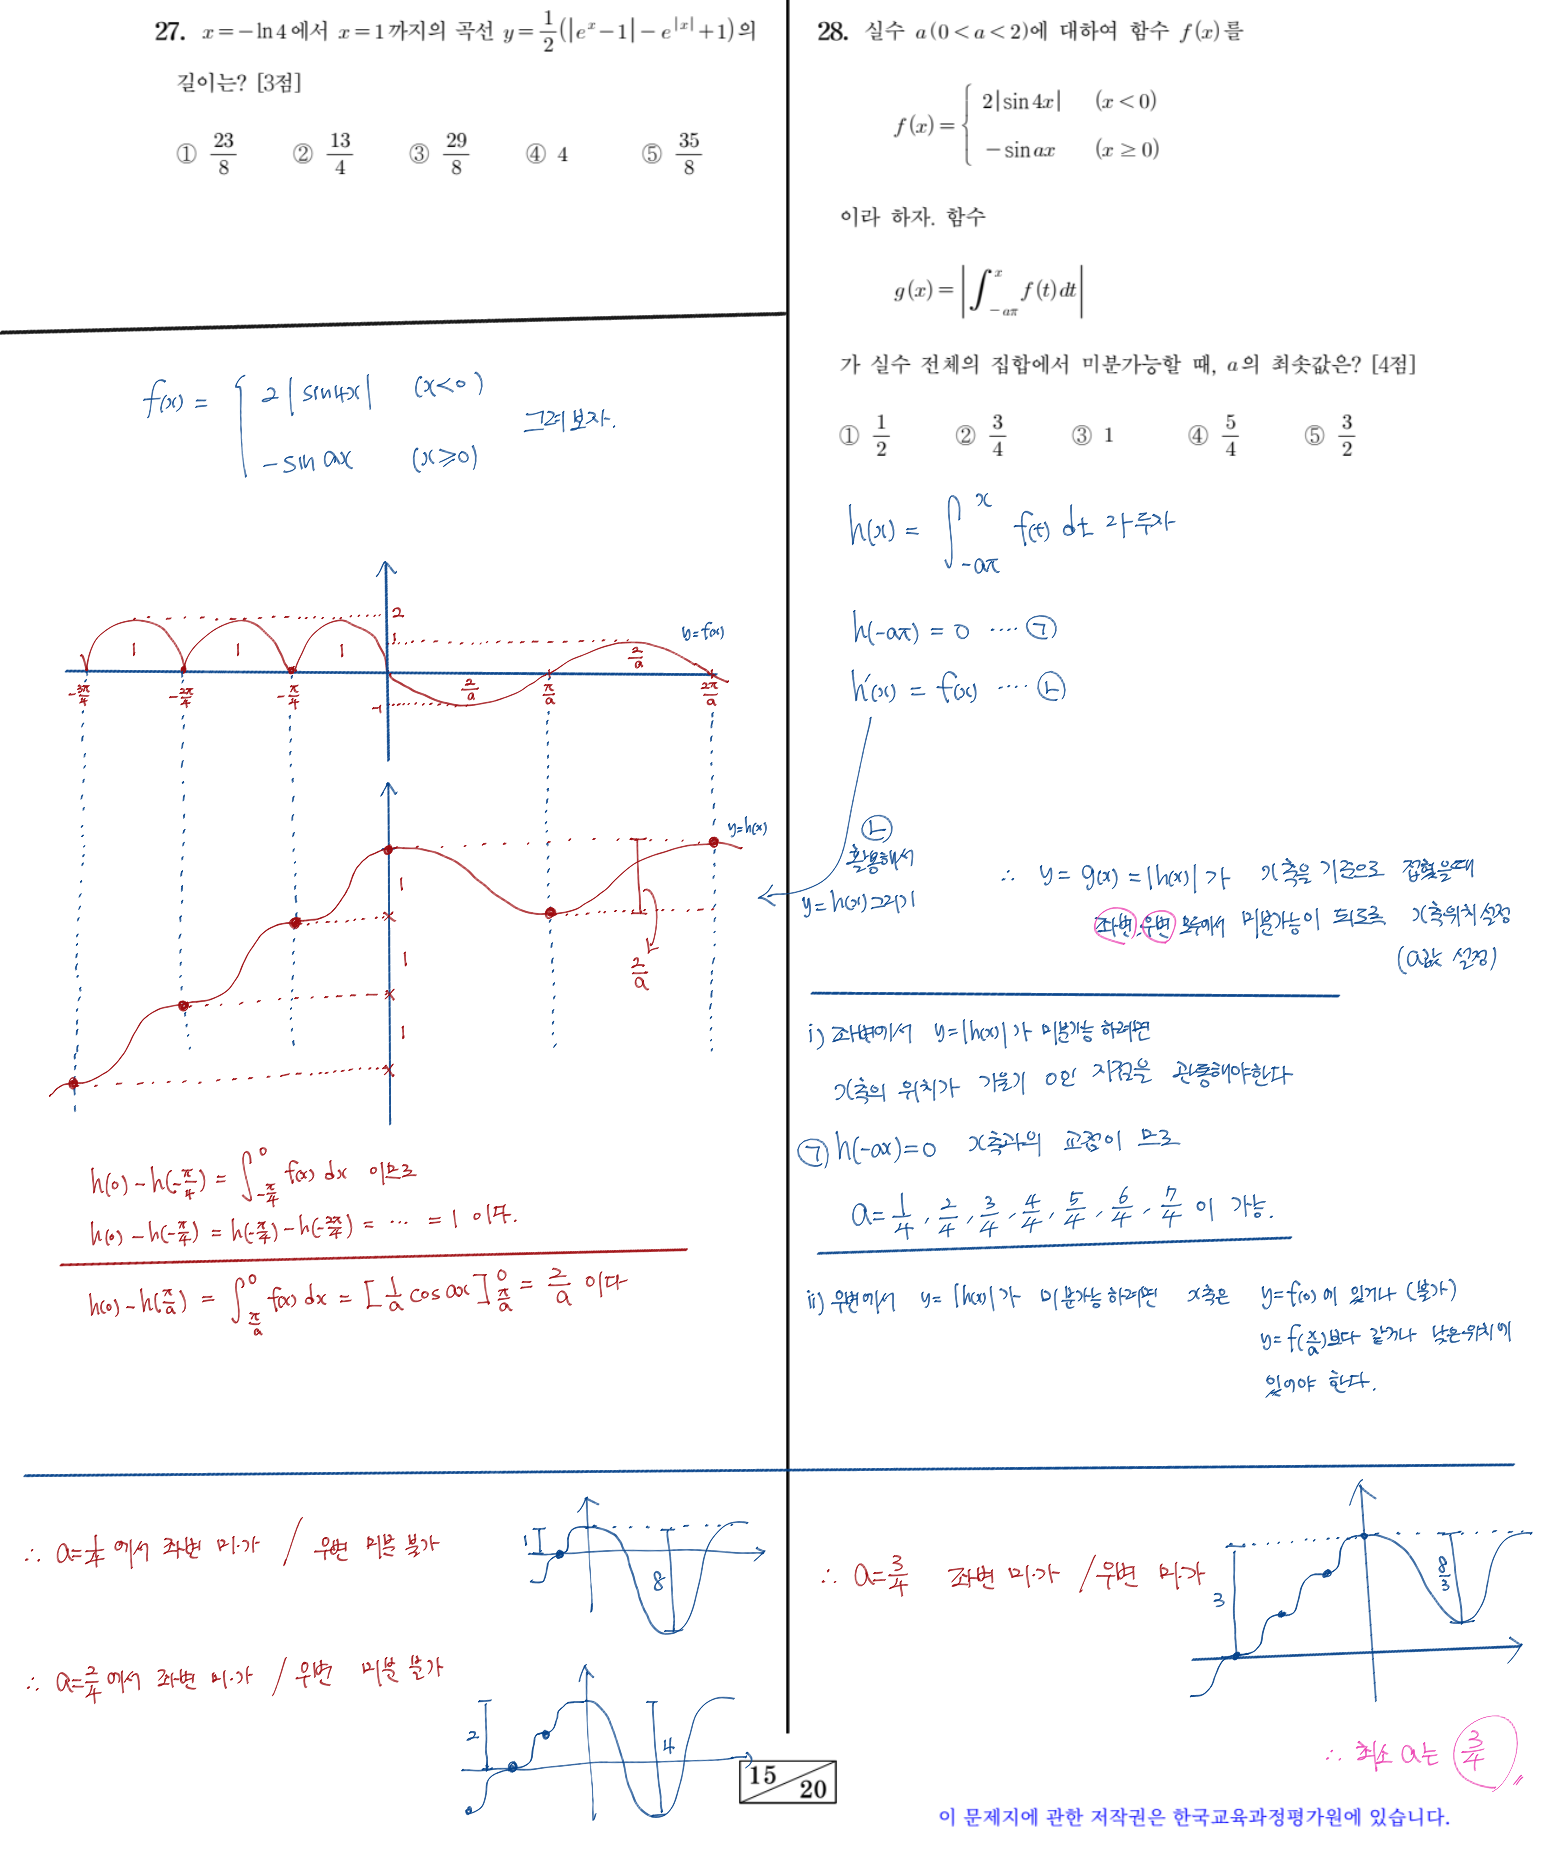 27. x=-ln4에서 x=1까지의 곡선 y=\frac{1}{2}(|e^x-1|-e^{|x|}+1)의
길이는? [3점]
① \frac{23}{8} ② \frac{13}{4} ③ \frac{29}{8} ④ 4 ⑤ \frac{35}{8}
f(x) = { 2|sin4x| (x<0)
-sin ax (x≥0) 그려보자.
2
1
y=f(x)
1 1 1
\frac{2}{a}
\frac{2}{a}
-\frac{3π}{4} -\frac{2π}{4} -\frac{π}{4} -1 \frac{π}{a} \frac{2π}{a}
y=h(x)
1
1
1
\frac{2}{a}
h(0)-h(-\frac{π}{4}) = ∫_{-\frac{π}{4}}^{0} f(x) dx 이므로
h(0)-h(-\frac{π}{4}) = h(-\frac{π}{4})-h(-\frac{2π}{4}) = ⋯ = 1 이다.
h(0)-h(\frac{π}{a}) = ∫_{\frac{π}{a}}^{0} f(x) dx = [\frac{1}{a} cos ax]_{\frac{π}{a}}^{0} = \frac{2}{a} 이다
28. 실수 a(0<a<2)에 대하여 함수 f(x)를
f(x)= { 2|sin4x| (x<0)
-sin ax (x≥0)
이라 하자. 함수
g(x)=|∫_{-aπ}^{x} f(t)dt|
가 실수 전체의 집합에서 미분가능할 때, a의 최솟값은? [4점]
① \frac{1}{2} ② \frac{3}{4} ③ 1 ④ \frac{5}{4} ⑤ \frac{3}{2}
h(x) = ∫_{-aπ}^{x} f(t) dt 라 두자
h(-aπ) = 0 ⋯⋯ ㉠
h'(x) = f(x) ⋯⋯ ㉡
㉡
활용해서
y=h(x) 그리기
∴ y = g(x) = |h(x)| 가 x축을 기준으로 접었을때
좌변, 우변 모두에서 미분가능이 되도록 x축위치 설정
(a값 설정)
i) 좌변에서 y=|h(x)|가 미분가능 하려면
x축의 위치가 기울기 0인 지점을 관통해야한다
㉠ h(-aπ)=0 x축과의 교점이 므로
a= \frac{1}{4}, \frac{2}{4}, \frac{3}{4}, \frac{4}{4}, \frac{5}{4}, \frac{6}{4}, \frac{7}{4} 이 가능.
ii) 우변에서 y=|h(x)|가 미분가능하려면 x축은 y=f(0)에 있거나 (불가)
y=f(\frac{π}{a})보다 같거나 낮은위치에
있어야 한다.
∴ a=\frac{1}{4} 에서 좌변 미·가 / 우변 미분 불가
1
8
∴ a=\frac{2}{4} 에서 좌변 미·가 / 우변 미분 불가
2
4
∴ a=\frac{3}{4} 좌변 미·가 / 우변 미·가
3
\frac{8}{3}
∴ 최소 a는 \frac{3}{4}
15 20
이 문제지에 관한 저작권은 한국교육과정평가원에 있습니다.